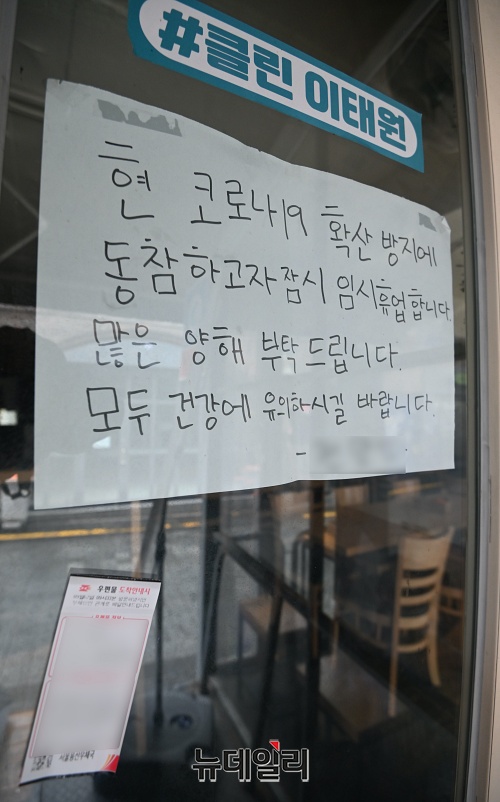 #클린 이태원
현 코로나19 확산 방지에
동참하고자 잠시 임시휴업합니다.
많은 양해 부탁드립니다.
모두 건강에 유의하시길 바랍니다.
-
우편물 도착안내서
서울용산우체국
뉴데일리